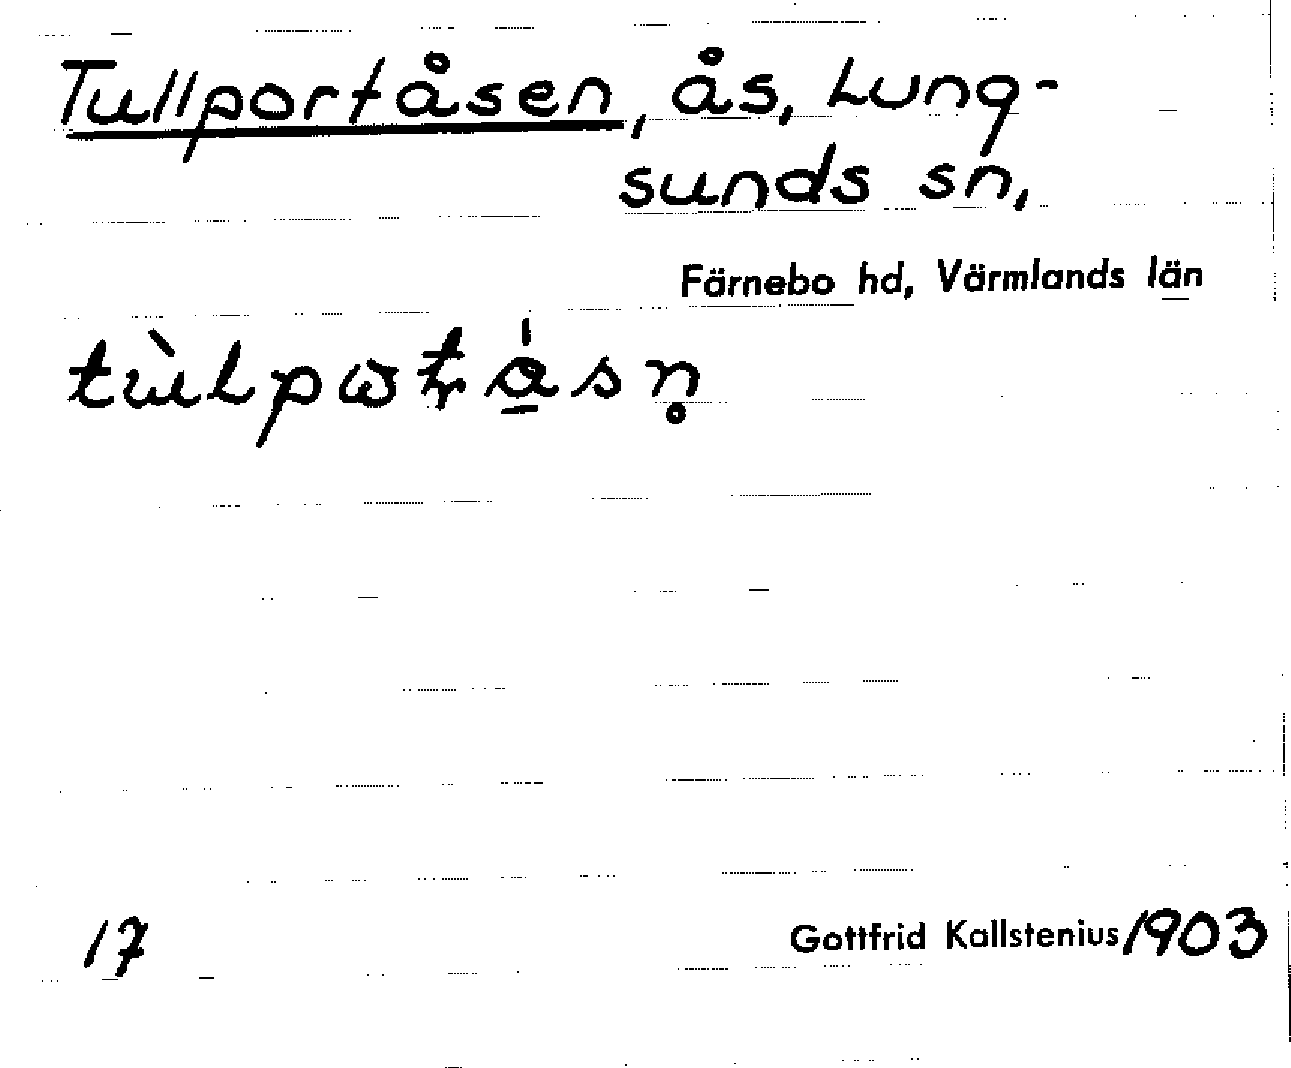 Tullportåsen, ås, Lung-
sunds sn,
Färnebo hd, Värmlands län
17
Gottfrid Kallstenius 1903